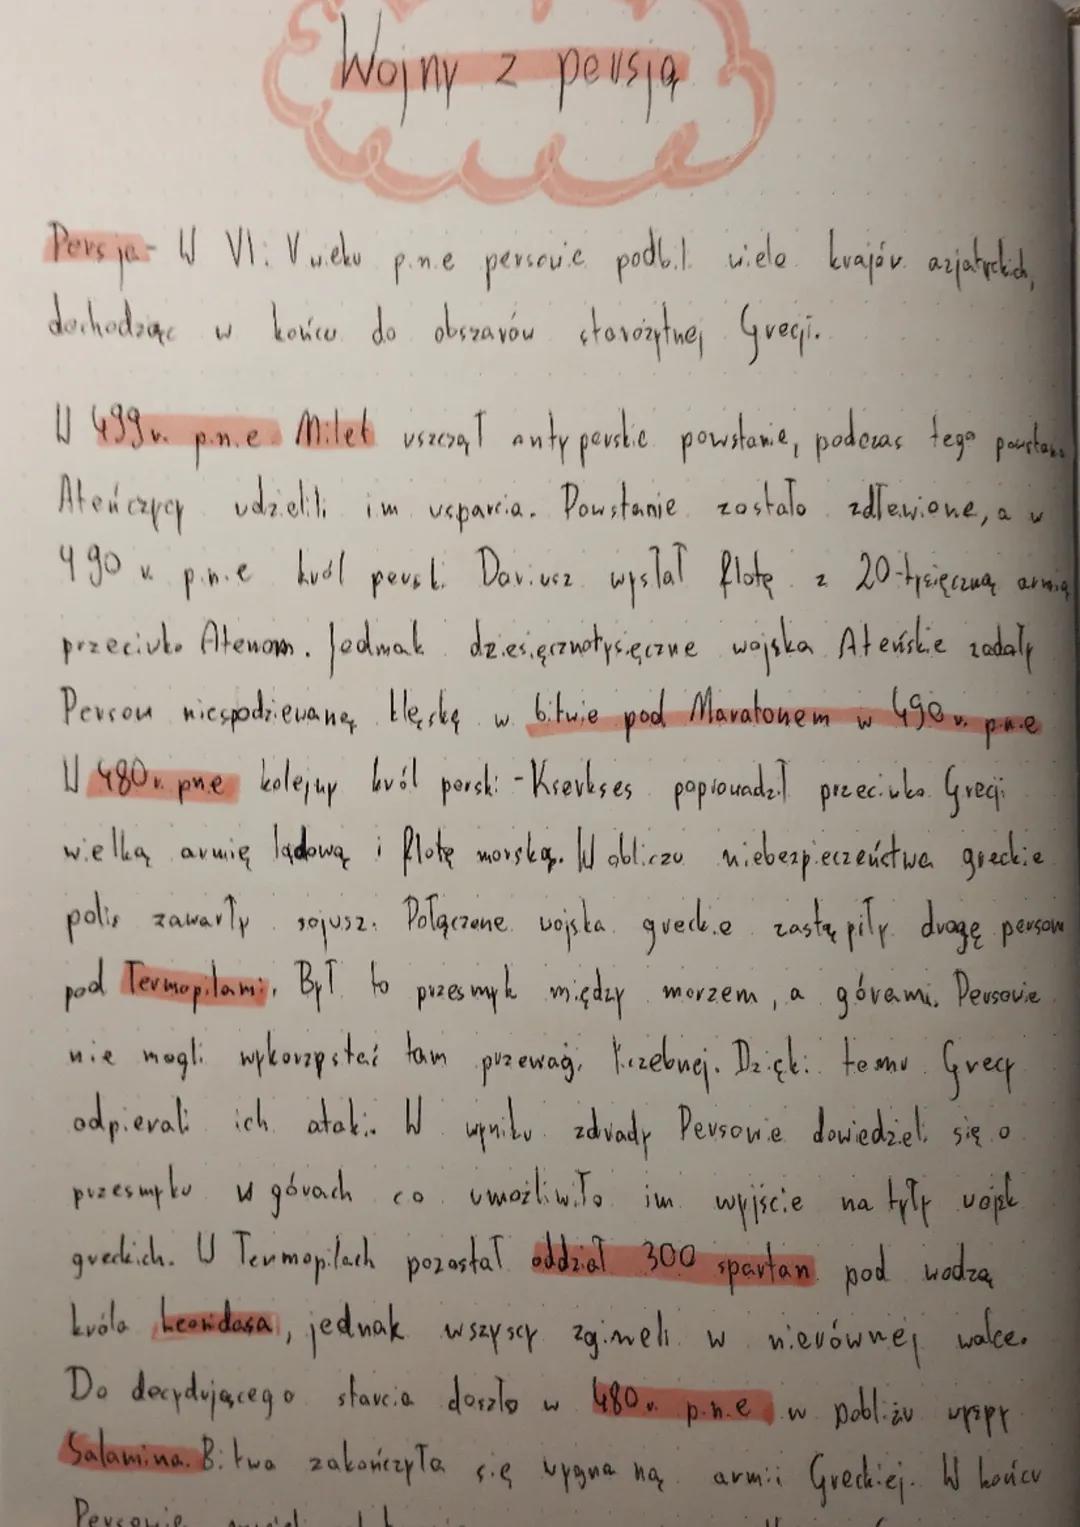 Wojny z persją
Persja - W VI i V wieku p.n.e persowie podbili wiele krajów azjatyckich,
dochodząc w końcu do obszarów starożytnej Grecji.
W 499 r. p.n.e Milet wszczął anty perskie powstanie, podczas tego powstania
Ateńczycy udzielili im wsparcia. Powstanie zostało zdławione, a w
490 r. p.n.e król perski Dariusz wysłał flotę z 20-tysięczną armią
przeciwko Atenom. Jednak dziesięcznotysięczne wojska Ateńskie zadały
Persom niespodziewaną klęskę w bitwie pod Maratonem w 490 r. p.n.e
W 480 r. pne kolejny król perski - Kserkses poprowadził przeciwko Grecji
wielką armię lądową i flotę morską. W obliczu niebezpieczeństwa greckie
polis zawarły sojusz. Połączone wojska greckie zastąpiły drogę persom
pod Termopilami. Był to przesmyk między morzem, a górami. Persowie
nie mogli wykorzystać tam przewagi liczebnej. Dzięki temu Grecy
odpierali ich ataki. W wyniku zdrady Persowie dowiedzieli się o
przesmyku w górach co umożliwiło im wyjście na tyły wojsk
greckich. W Termopilach pozostał oddział 300 spartan pod wodzą
króla Leonidasa, jednak wszyscy zgineli w nierównej walce.
Do decydującego starcia doszło w 480 r. p.n.e w pobliżu wyspy
Salamina. Bitwa zakończyła się wygraną armii Greckiej. W końcu
Persowie